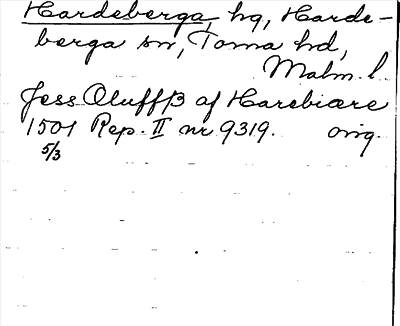 Hardeberga, hg, Harde-
berga sn, Torna hd,
Malm. l.
Jess Oluffß af Harebiære
1501 Rep. II nr 9319. orig.
5/3